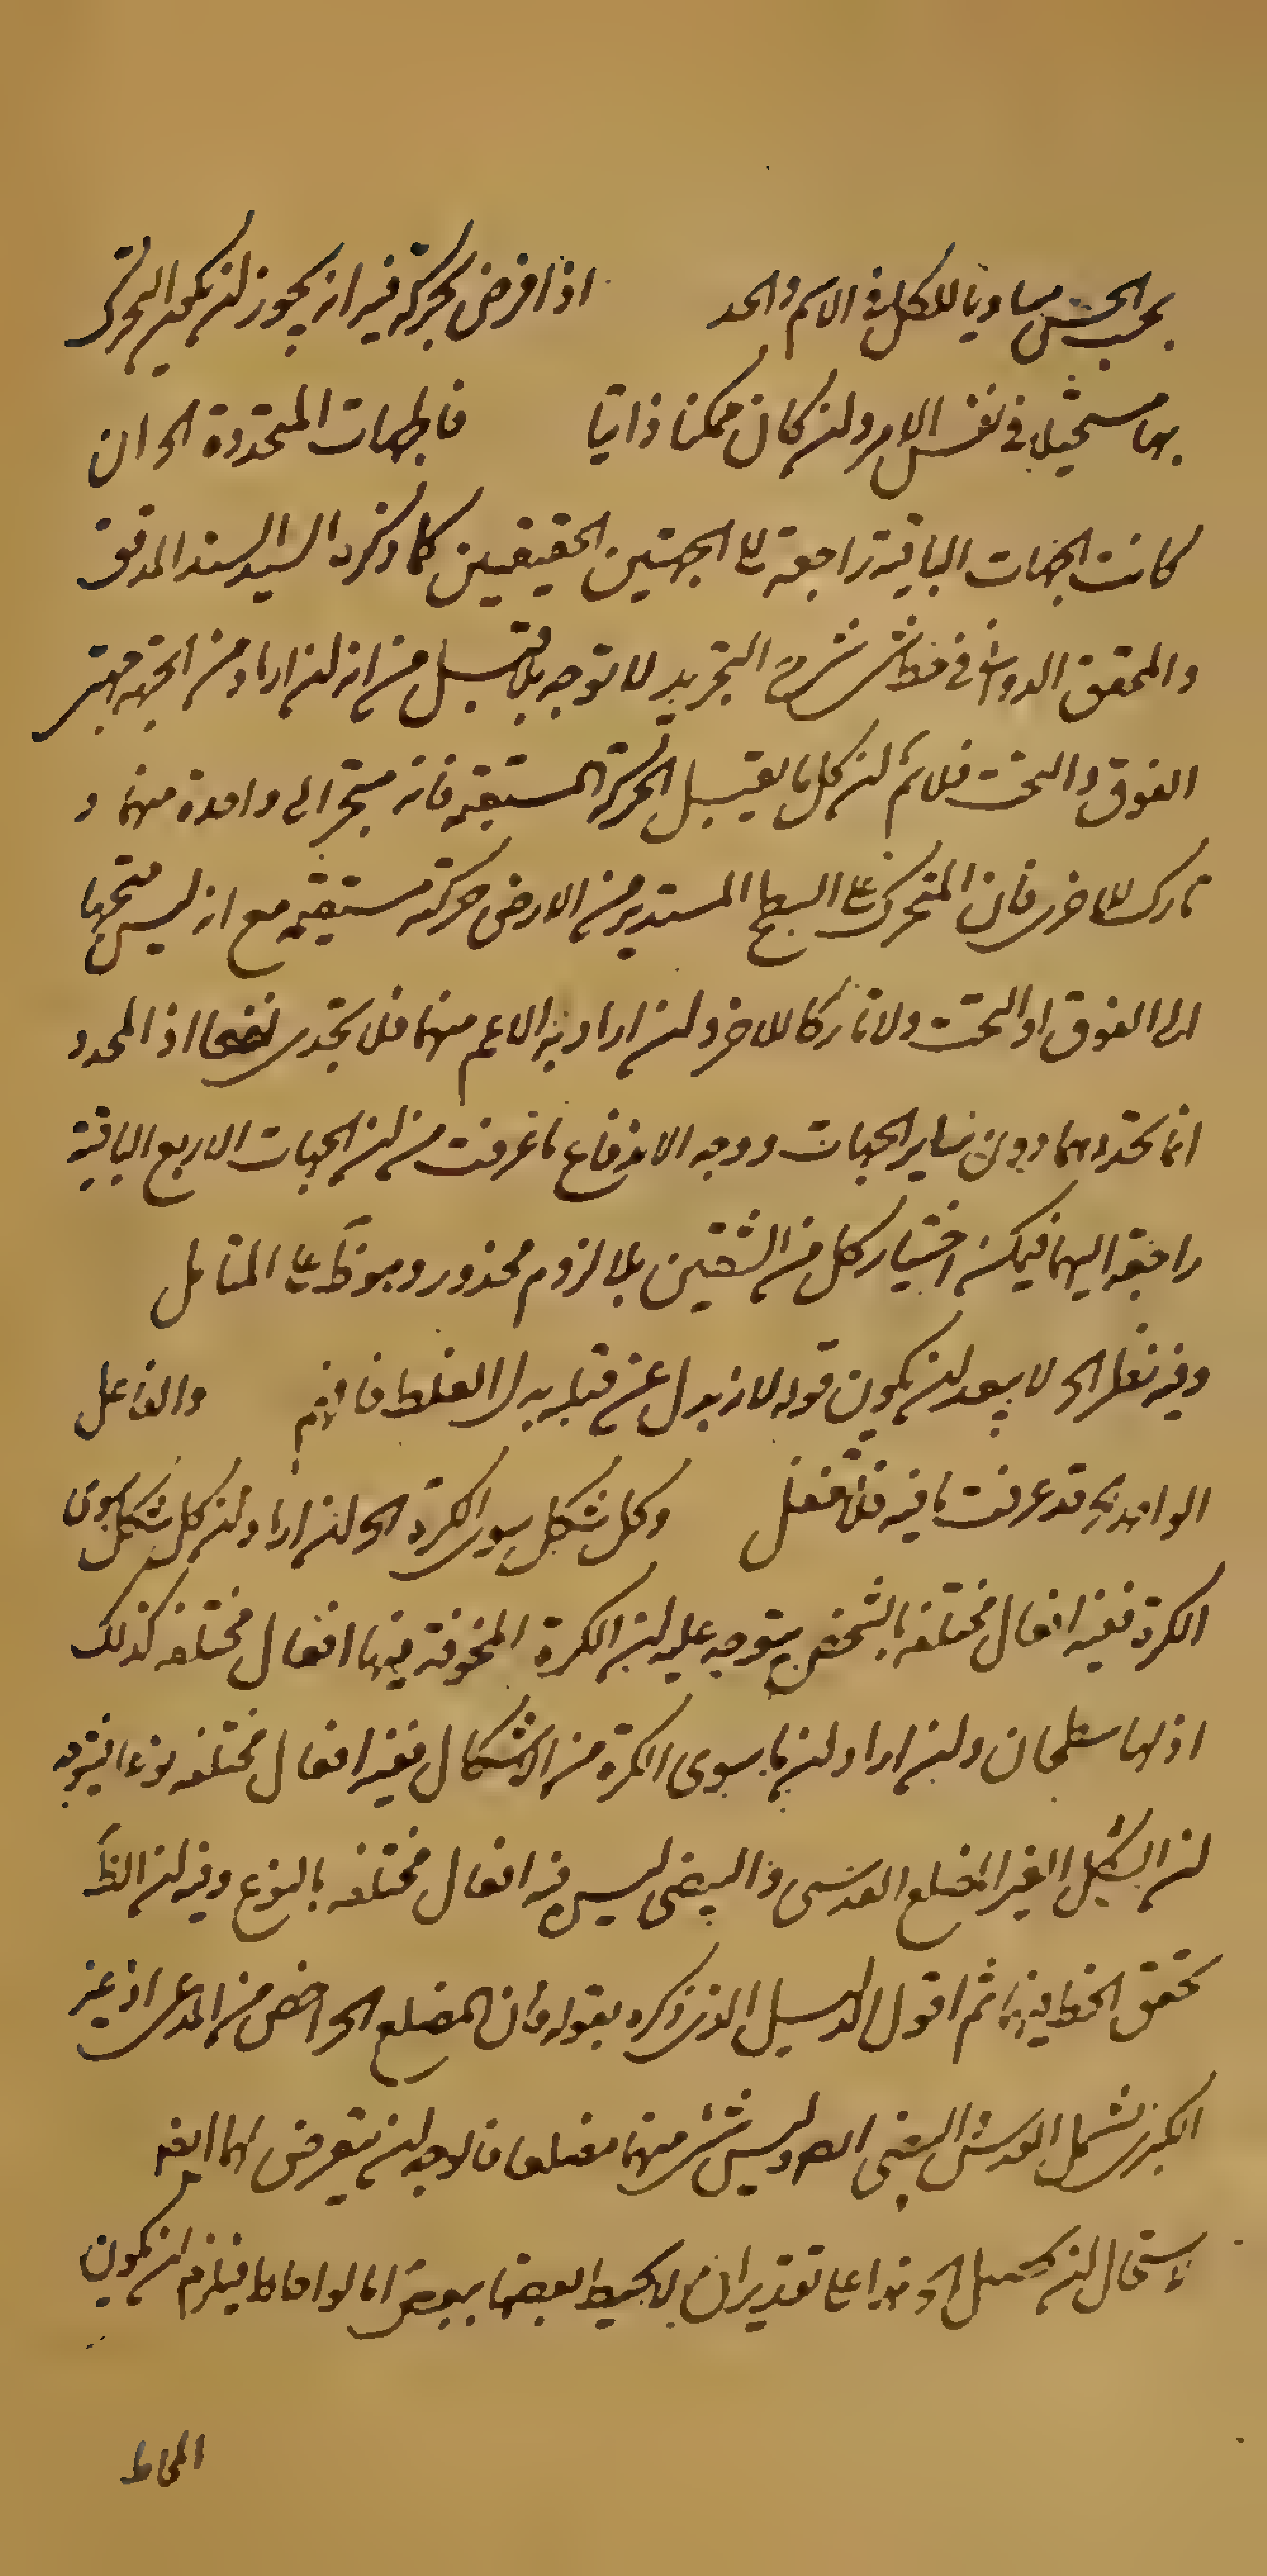 بحسب الحس مساويا للكل في الاسم والحد اذا فرض بحركة فيه انه يجوز ان يكون التحرك
بها مستحيلا في نفس الامر وان كان ممكنا ذاتيا فالجهات المتحددة الخ ان
كانت الجهات الباقية راجعة الى الجهتين الحقيقيين كما ذكره السيد السند المدقق
والمحقق الدواني في شرح التجريد لا توجه بما قيل من انه ان اراد من الجهة جهتى
الفوق والتحت فلانم ان كل ما يقبل الحركة المستقيمة فانه متجه الى واحدة منهما و
تارك للاخرى فان المتحرك على السطح المستدير من الارض حركته مستقيمة مع انه ليس متجها
الى الفوق او التحت ولا تاركا للاخر وان اراد به الاعم منهما فلا يجدى نفعا اذ المحدد
انما يحددهما دون ساير الجهات ووجه الاندفاع ما عرفت من ان الجهات الاربع الباقية
راجعة اليهما فيمكن اختيار كل من الشقين بلا لزوم محذور وهو ظ على المتامل
وفيه نظر الخ لا يبعد ان يكون قوله لانه بدل عن قبله بدل الغلط فافهم والفاعل
الواحد الخ قد عرفت ما فيه فلا تغفل وكل شكل سوى الكرة الخ ان اراد ان كل شكل سوى
الكرة ففيه افعال مختلفة بالشخص يتوجه عليه ان الكرة المجوفة فيها افعال مختلفة كذلك
اذ لها سطحان وان اراد ان ما سوى الكرة من الاشكال ففيه افعال مختلفة نوعا فيتوجه
ان الشكل الغير المضلع العدسى والبيضى ليس فيه افعال مختلفة بالنوع وفيه ان الظ
تحقق الخط فيهما ثم اقول الدليل الذى ذكره بقوله فان المضلع الخ اخص من المدعى اذ غير
الكرى يشمل العدسى والبيضى ايضا وليس شئ منهما مضلعا فالاوجه ان يتعرض لهما ايضا
لاستحال ان يحصل الخ هذا على تقدير ان لا يحيط بعضها ببعض اما لو احاط فيلزم ان يكون
المحاط